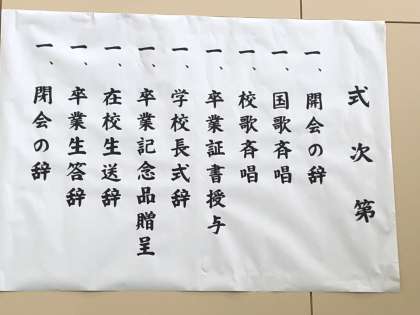 式次第
一、開会の辞
一、国歌斉唱
一、校歌斉唱
一、卒業証書授与
一、学校長式辞
一、卒業記念品贈呈
一、在校生送辞
一、卒業生答辞
一、閉会の辞